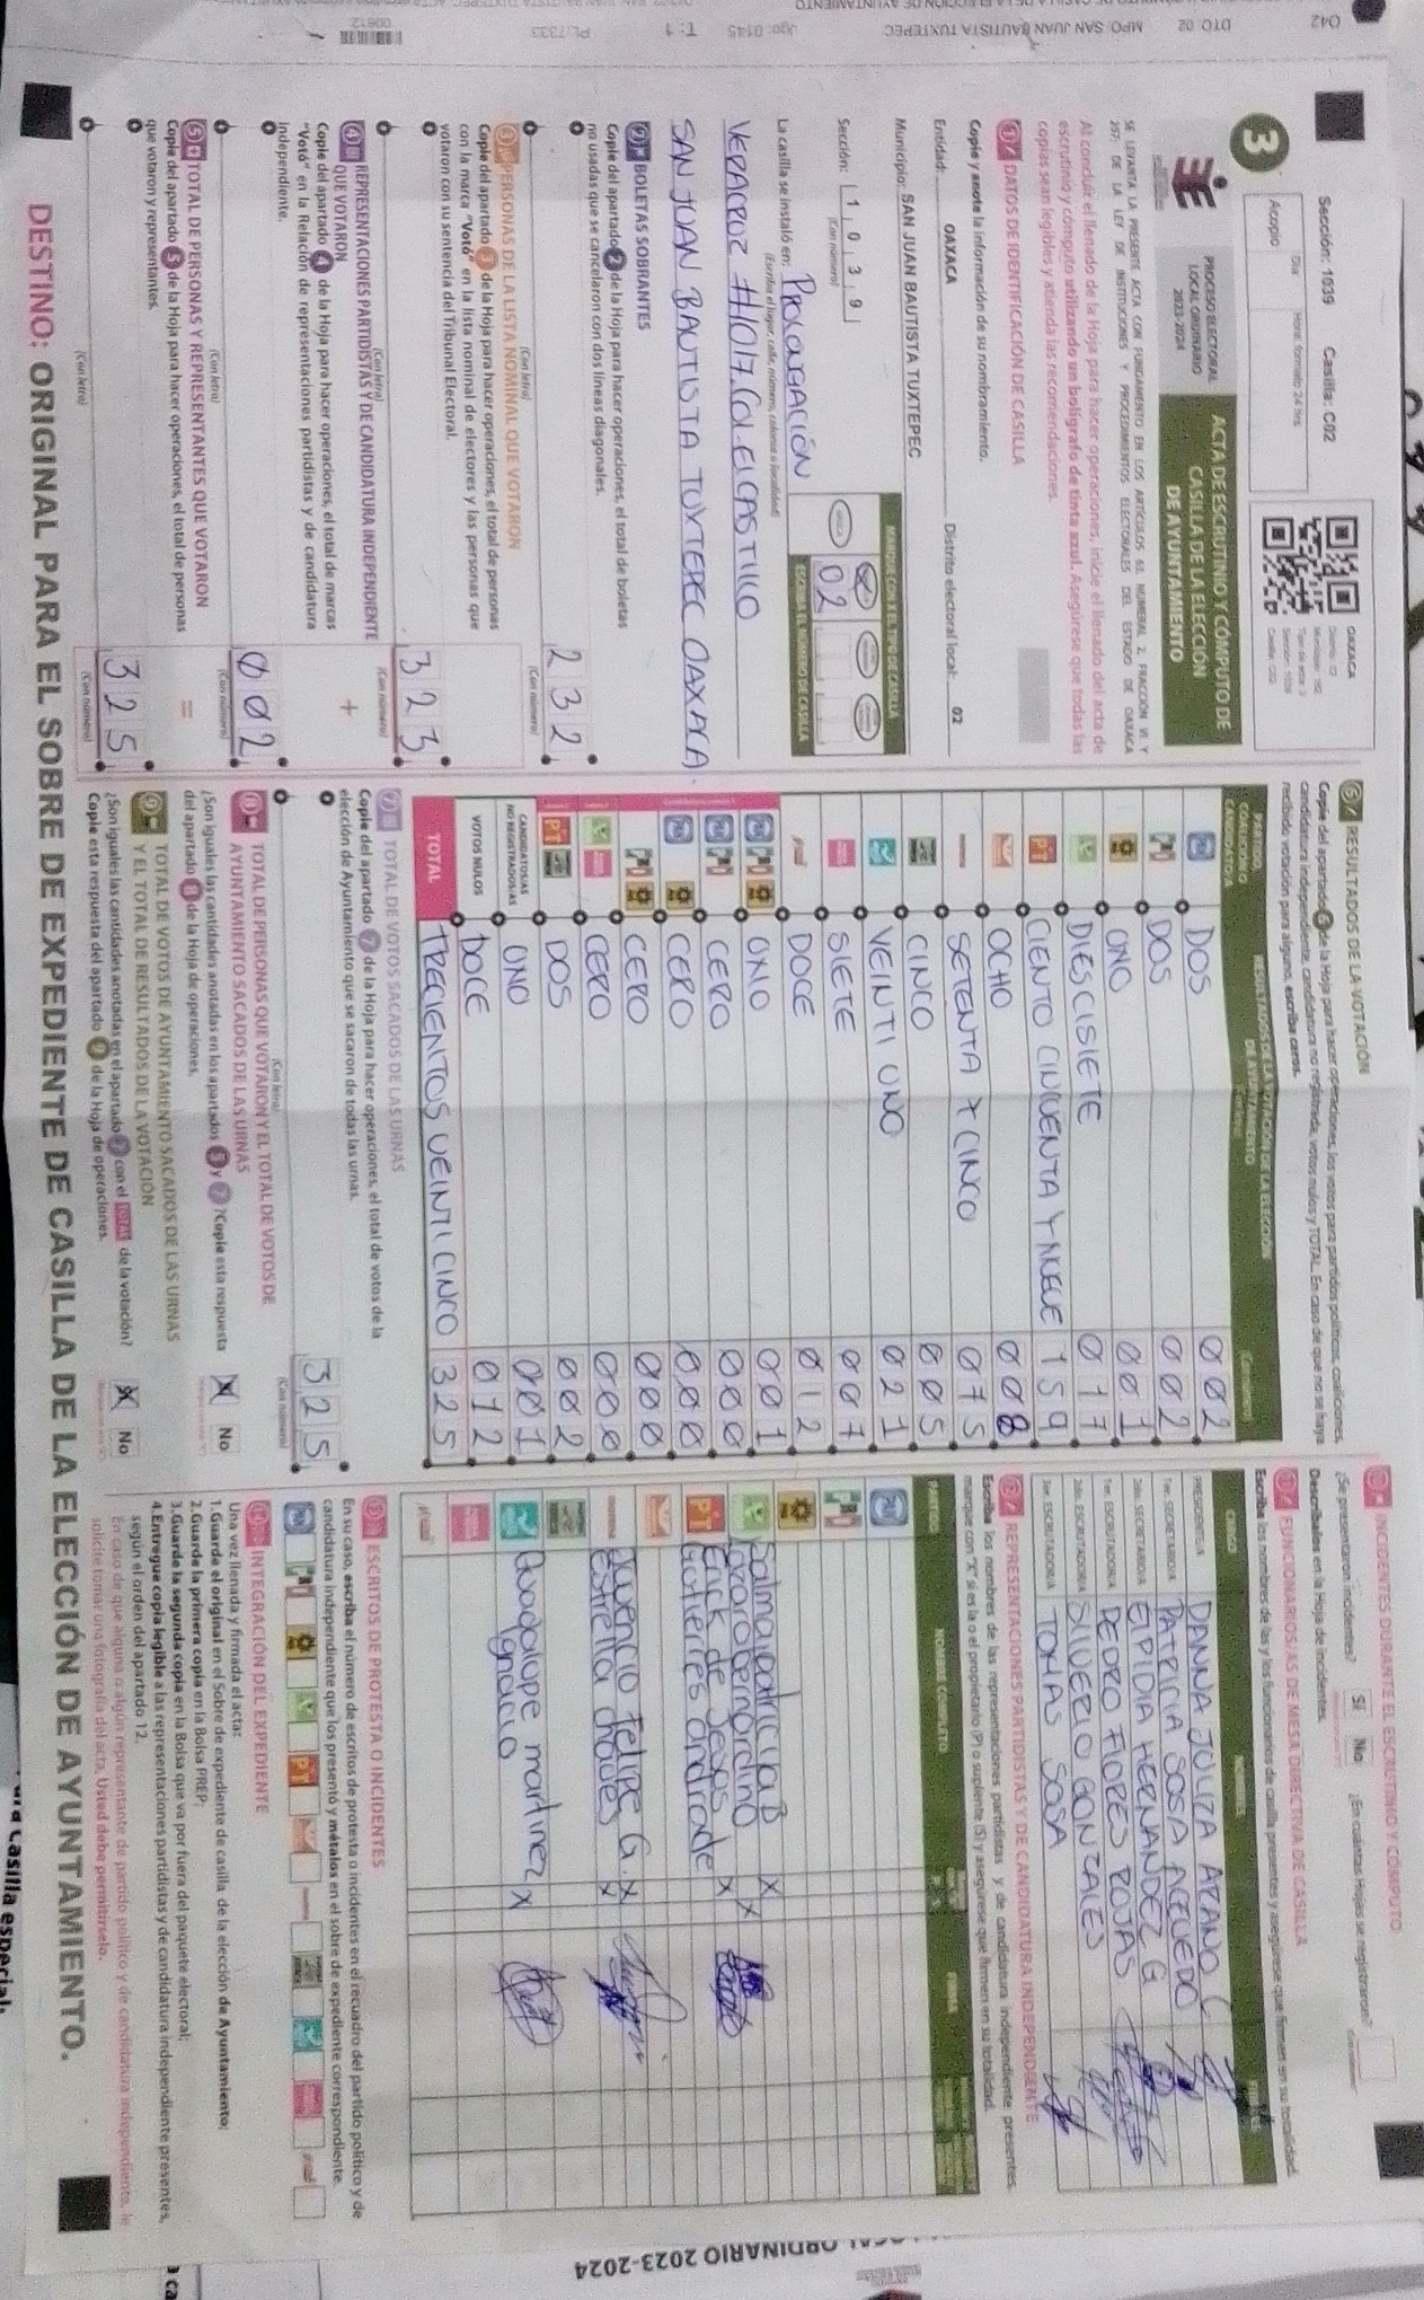 Sección: 1039 Casilla: C02
OAXACA
3
Acopio
Día
Hora: formato 24 hrs
PROCESO ELECTORAL
LOCAL ORDINARIO
2023-2024
ACTA DE ESCRUTINIO Y CÓMPUTO DE
CASILLA DE LA ELECCIÓN
DE AYUNTAMIENTO
SE LEVANTA LA PRESENTE ACTA CON FUNDAMENTO EN LOS ARTÍCULOS 63, NUMERAL 2, FRACCIÓN VI Y
257; DE LA LEY DE INSTITUCIONES Y PROCEDIMIENTOS ELECTORALES DEL ESTADO DE OAXACA
Al concluir el llenado de la Hoja para hacer operaciones, inicie el llenado del acta de
escrutinio y cómputo utilizando un bolígrafo de tinta azul. Asegúrese que todas las
copias sean legibles y atienda las recomendaciones.
1 DATOS DE IDENTIFICACIÓN DE CASILLA
Copie y anote la información de su nombramiento.
Entidad: OAXACA Distrito electoral local: 02
Municipio: SAN JUAN BAUTISTA TUXTEPEC
MARQUE CON X EL TIPO DE CASILLA
Sección: 1 0 3 9
(Con número)
ESCRIBA EL NÚMERO DE CASILLA
02
La casilla se instaló en: PROLONGACIÓN
(Escriba el lugar, calle, número, colonia o localidad)
VERACRUZ #1017. COL. EL CASTILLO
SAN JUAN BAUTISTA TUXTEPEC OAXACA.
2 BOLETAS SOBRANTES
Copie del apartado 2 de la Hoja para hacer operaciones, el total de boletas
no usadas que se cancelaron con dos líneas diagonales.
232
(Con letra) (Con número)
3 PERSONAS DE LA LISTA NOMINAL QUE VOTARON
Copie del apartado 3 de la Hoja para hacer operaciones, el total de personas
con la marca "Votó" en la lista nominal de electores y las personas que
votaron con su sentencia del Tribunal Electoral.
323
(Con letra) (Con número)
4 REPRESENTACIONES PARTIDISTAS Y DE CANDIDATURA INDEPENDIENTE
QUE VOTARON
+
Copie del apartado 4 de la Hoja para hacer operaciones, el total de marcas
"Votó" en la Relación de representaciones partidistas y de candidatura
independiente.
002
(Con letra) (Con número)
5 TOTAL DE PERSONAS Y REPRESENTANTES QUE VOTARON
=
Copie del apartado 5 de la Hoja para hacer operaciones, el total de personas
que votaron y representantes.
325
(Con letra) (Con número)
6 RESULTADOS DE LA VOTACIÓN
Copie del apartado 6 de la Hoja para hacer operaciones, los votos para partidos políticos, coaliciones,
candidatura independiente, candidatura no registrada, votos nulos y TOTAL. En caso de que no se haya
recibido votación para alguno, escriba ceros.
PARTIDO, COALICIÓN O CANDIDATO/A
RESULTADOS DE LA VOTACIÓN DE LA ELECCIÓN
DE AYUNTAMIENTO
DOS 002
DOS 002
UNO 001
DIESCISIETE 017
PT CIENTO CINCUENTA Y NUEVE 159
OCHO 008
SETENTA Y CINCO 075
CINCO 005
VEINTI UNO 021
SIETE 007
DOCE 012
UNO 001
CERO 000
CERO 000
CERO 000
CERO 000
PT DOS 002
CANDIDATOS/AS
NO REGISTRADOS/AS UNO 001
VOTOS NULOS DOCE 012
TOTAL TRECIENTOS VEINTI CINCO 325
7 TOTAL DE VOTOS SACADOS DE LAS URNAS
Copie del apartado 7 de la Hoja para hacer operaciones, el total de votos de la
elección de Ayuntamiento que se sacaron de todas las urnas.
325
(Con letra) (Con número)
8 TOTAL DE PERSONAS QUE VOTARON Y EL TOTAL DE VOTOS DE
AYUNTAMIENTO SACADOS DE LAS URNAS
¿Son iguales las cantidades anotadas en los apartados 5 y 7? Copie esta respuesta
del apartado 8 de la Hoja de operaciones.
X No
9 TOTAL DE VOTOS DE AYUNTAMIENTO SACADOS DE LAS URNAS
Y EL TOTAL DE RESULTADOS DE LA VOTACIÓN
¿Son iguales las cantidades anotadas en el apartado 7 con el TOTAL de la votación?
Copie esta respuesta del apartado 9 de la Hoja de operaciones.
X No
10 INCIDENTES DURANTE EL ESCRUTINIO Y CÓMPUTO
¿Se presentaron incidentes? Sí No ¿En cuántas Hojas se registraron?
Descríbalos en la Hoja de incidentes.
11 FUNCIONARIOS/AS DE MESA DIRECTIVA DE CASILLA
Escriba los nombres de las y los funcionarios de casilla presentes y asegúrese que firmen en su totalidad.
CARGO NOMBRES FIRMAS
PRESIDENTE/A DANNA JULIZA ARANO C
1er. SECRETARIO/A PATRICIA SOSA ACEVEDO
2do. SECRETARIO/A ELPIDIA HERNANDEZ G
1er. ESCRUTADOR/A PEDRO FLORES ROJAS
2do. ESCRUTADOR/A SILVERIO GONZALES
3er. ESCRUTADOR/A TOMAS SOSA
12 REPRESENTACIONES PARTIDISTAS Y DE CANDIDATURA INDEPENDIENTE PRESENTES
Escriba los nombres de las representaciones partidistas y de candidatura independiente presentes,
marque con "X" si es la o el propietario (P) o suplente (S) y asegúrese que firmen en su totalidad.
PARTIDO NOMBRE COMPLETO FIRMA
Salma patricia B X
Lazaro bernardino X
PT Erick de Jesus X
Gutierres andrade
Juvencio Felipe G. X
estrella chaves X
Guadalupe martinez X
gnacio
13 ESCRITOS DE PROTESTA O INCIDENTES
En su caso, escriba el número de escritos de protesta o incidentes en el recuadro del partido político y de
candidatura independiente que los presentó y métalos en el sobre de expediente correspondiente.
PT
14 INTEGRACIÓN DEL EXPEDIENTE
Una vez llenada y firmada el acta:
1.Guarde el original en el Sobre de expediente de casilla de la elección de Ayuntamiento;
2.Guarde la primera copia en la Bolsa PREP;
3.Guarde la segunda copia en la Bolsa que va por fuera del paquete electoral;
4.Entregue copia legible a las representaciones partidistas y de candidatura independiente presentes,
según el orden del apartado 12.
En caso de que alguna o algún representante de partido político y de candidatura independiente, le
solicite tomar una fotografía del acta, Usted debe permitírselo.
DESTINO: ORIGINAL PARA EL SOBRE DE EXPEDIENTE DE CASILLA DE LA ELECCIÓN DE AYUNTAMIENTO.
042 DTO 02 MPO SAN JUAN BAUTISTA TUXTEPEC Jgo: 0145 T: 1 PL:7333
00612
ORDINARIO 2023-2024